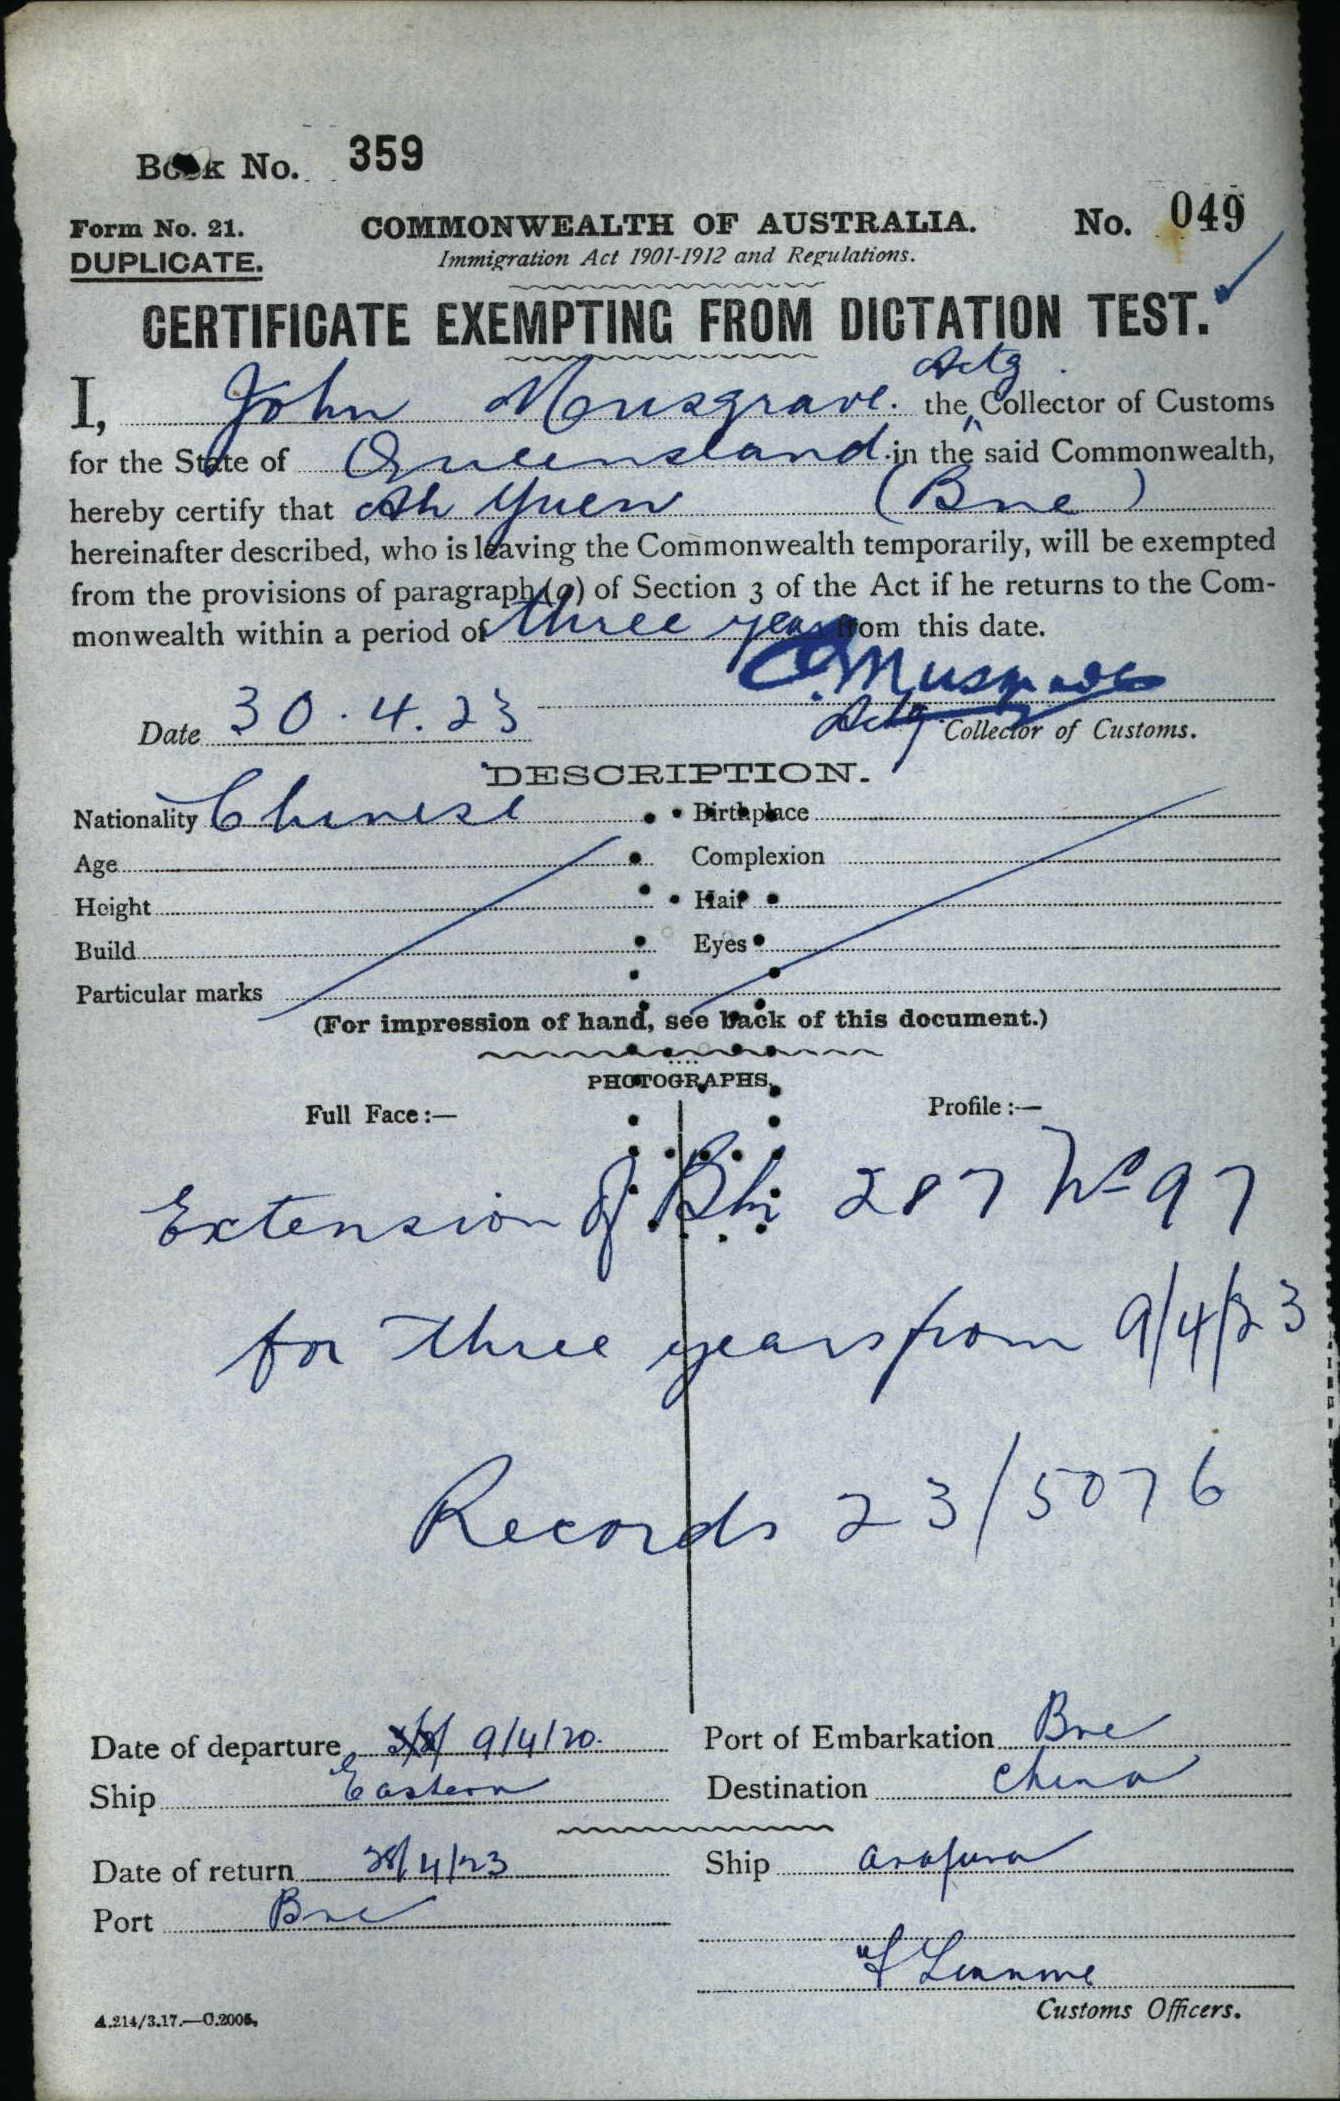 Book No. 359
Form No. 21.
DUPLICATE.
COMMONWEALTH OF AUSTRALIA.
Immigration Act 1901-1912 and Regulations.
No. 049
CERTIFICATE EXEMPTING FROM DICTATION TEST.
I, John Musgrave. the Actg Collector of Customs
for the State of Queensland in the said Commonwealth,
hereby certify that Ah Yuen (Bne)
hereinafter described, who is leaving the Commonwealth temporarily, will be exempted
from the provisions of paragraph (a) of Section 3 of the Act if he returns to the Com-
monwealth within a period of three years from this date.
Musgrave
Date 30.4.23
Actg Collector of Customs.
DESCRIPTION.
Nationality Chinese Birthplace
Age Complexion
Height Hair
Build Eyes
Particular marks
(For impression of hand, see back of this document.)
PHOTOGRAPHS.
Full Face:— Profile:—
Extension of Bk 287 No 97
for three years from 9/4/23
Records 23/5076
Date of departure 9/4/20. Port of Embarkation Bne
Ship Eastern Destination China
Date of return 28/4/23 Ship Arafura
Port Bne
Customs Officers.
A.214/3.17.—C.2005.